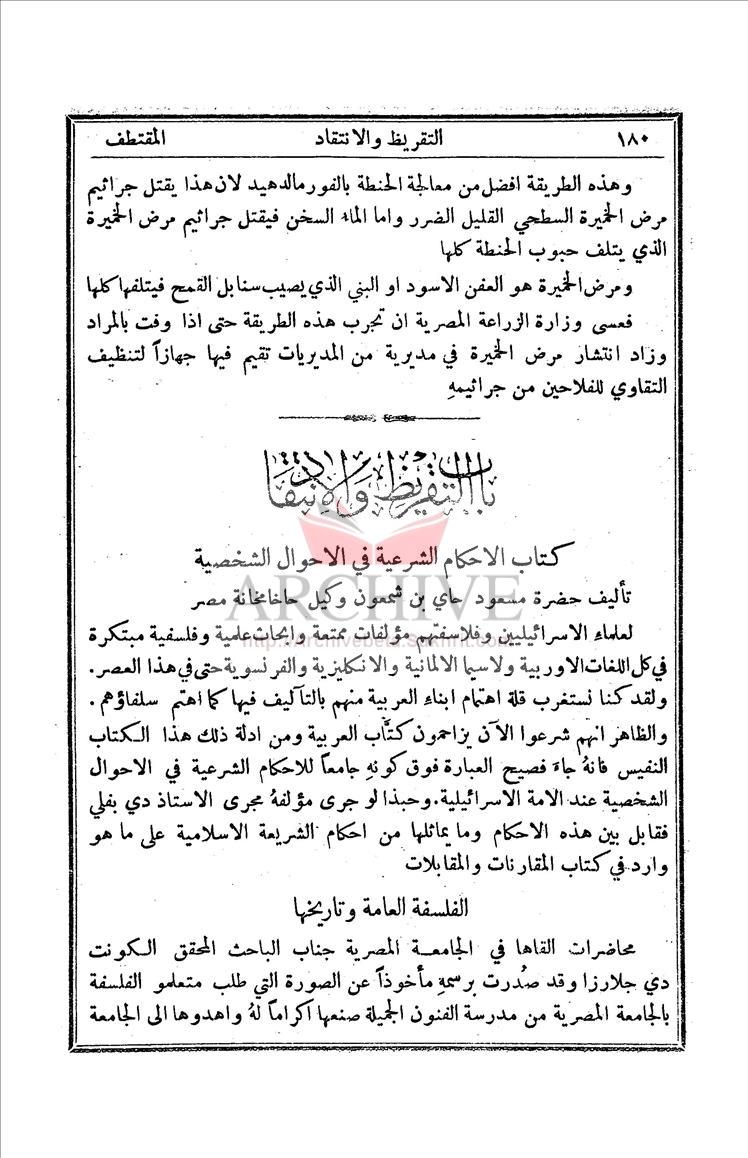 ١٨٠ التقريظ والانتقاد المقتطف
وهذه الطريقة افضل من معالجة الحنطة بالفورمالدهيد لان هذا يقتل جراثيم
مرض الخميرة السطحي القليل الضرر واما الماء السخن فيقتل جراثيم مرض الخميرة
الذي يتلف حبوب الحنطة كلها
ومرض الخميرة هو العفن الاسود او البني الذي يصيب سنابل القمح فيتلفها كلها
فعسى وزارة الزراعة المصرية ان تجرب هذه الطريقة حتى اذا وفت بالمراد
وزاد انتشار مرض الخميرة في مديرية من المديريات تقيم فيها جهازاً لتنظيف
التقاوي للفلاحين من جراثيمهِ
باب التقريظ والانتقاد
كتاب الاحكام الشرعية في الاحوال الشخصية
ARCHIVE
تأليف حضرة مسعود حاي بن شمعون وكيل حاخامخانة مصر
لعلماء الاسرائيليين وفلاسفتهم مؤلفات ممتعة وابحاث علمية وفلسفية مبتكرة
http://Archivebeta.Sakhrit.com
في كل اللغات الاوربية ولاسيما الالمانية والانكليزية والفرنسوية حتى في هذا العصر.
ولقد كنا نستغرب قلة اهتمام ابناء العربية منهم بالتآليف فيها كما اهتم سلفاؤهم.
والظاهر انهم شرعوا الآن يزاحمون كتَّاب العربية ومن ادلة ذلك هذا الكتاب
النفيس فانهُ جاءَ فصيح العبارة فوق كونهِ جامعاً للاحكام الشرعية في الاحوال
الشخصية عند الامة الاسرائيلية. وحبذا لو جرى مؤلفهُ مجرى الاستاذ دي بفلي
فقابل بين هذه الاحكام وما يماثلها من احكام الشريعة الاسلامية على ما هو
وارد في كتاب المقارنات والمقابلات
الفلسفة العامة وتاريخها
محاضرات القاها في الجامعة المصرية جناب الباحث المحقق الكونت
دي جلارزا وقد صُدرت برسمهِ مأخوذاً عن الصورة التي طلب متعلمو الفلسفة
بالجامعة المصرية من مدرسة الفنون الجميلة صنعها اكراماً لهُ واهدوها الى الجامعة